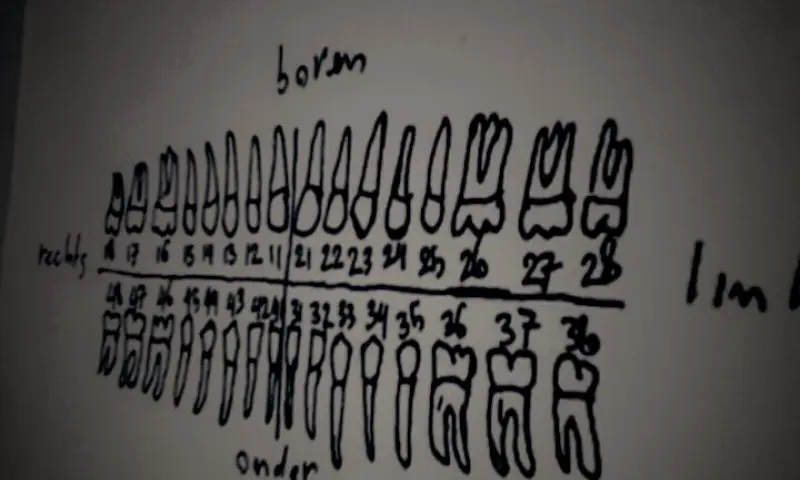 boven
rechts 18 17 16 15 14 13 12 11 21 22 23 24 25 26 27 28
48 47 46 45 44 43 42 41 31 32 33 34 35 36 37 38
onder